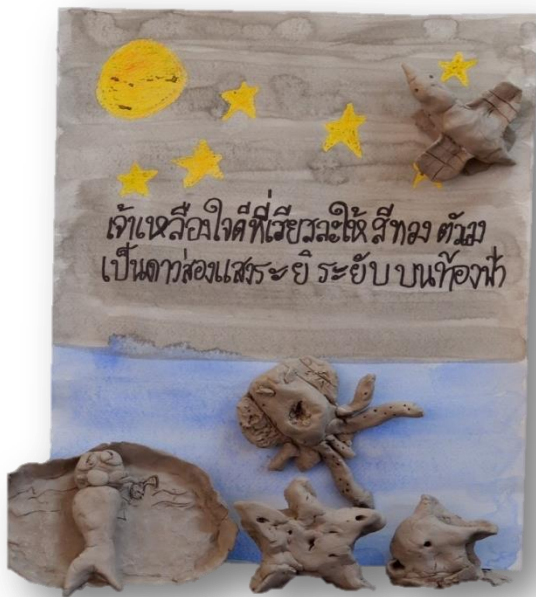 เจ้าเหลืองใจดีที่เรียวละให้ สีทอง ตัวมง
เป็นดาวส่องแสงระยิ ระยับ บนท้องฟ้า